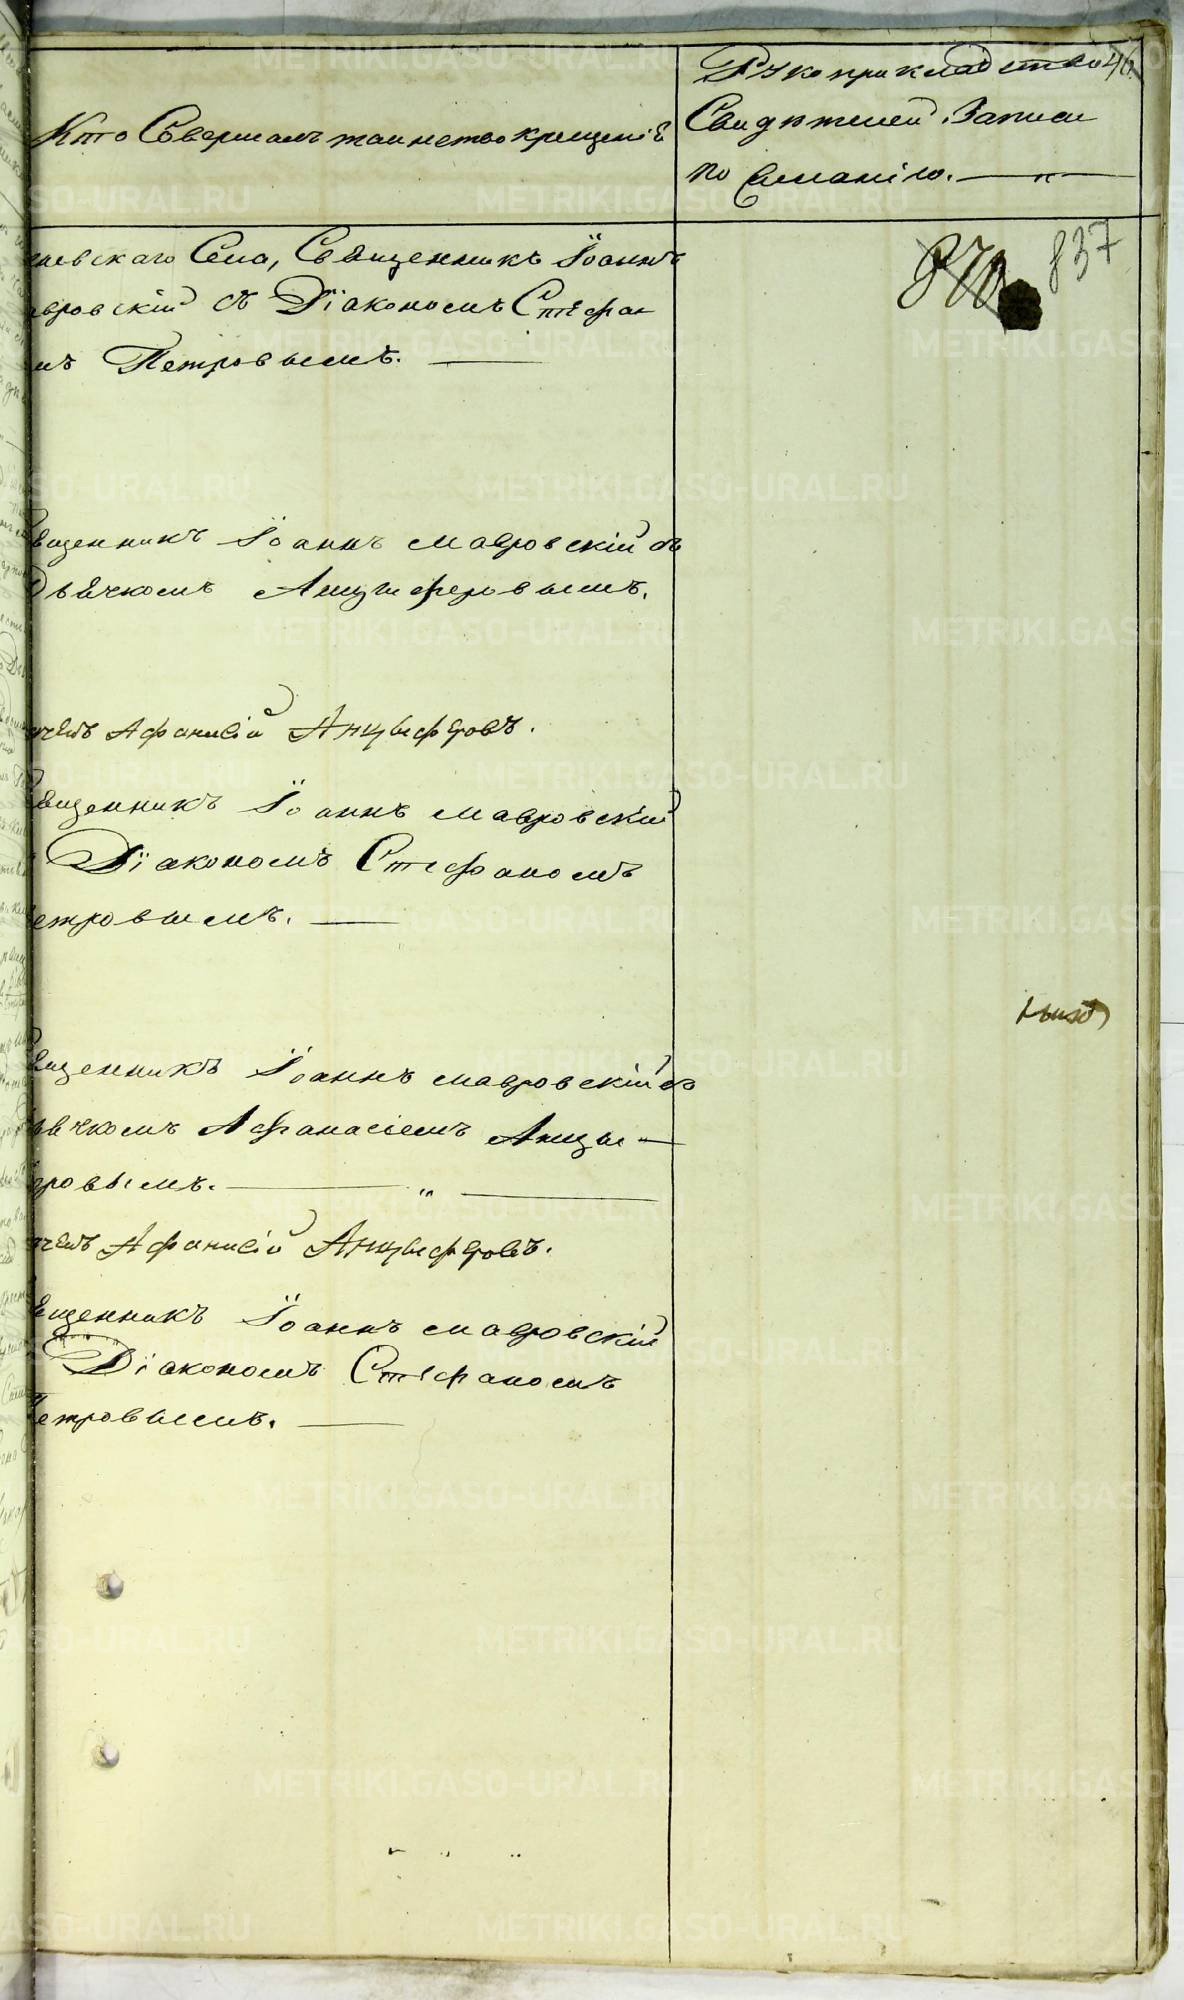 Кто Совершалъ таинство крещенiѣ
Рукоприкладство 46
Свидѣтелей Записи
по Желанiю. — „ —
837
аевскаго Села, Священникъ Іоаннъ
авровскій съ Діакономъ Стефан
мъ Петровымъ. —
вященникъ Іоаннъ мавровскій съ
дьячкомъ Анцыферовымъ.
ячекъ Афанасій Анцыферовъ.
вященникъ Іоаннъ мавровскій
Діакономъ Стефаномъ
етровымъ. —
вященникъ Іоаннъ мавровскій съ
ьячкомъ Афанасіемъ Анцы—
еровымъ. — „ —
ячекъ Афанасій Анцыферовъ.
вященникъ Іоаннъ мавровскій
Діакономъ Стефаномъ
Петровымъ. —
METRIKI.GASO-URAL.RU